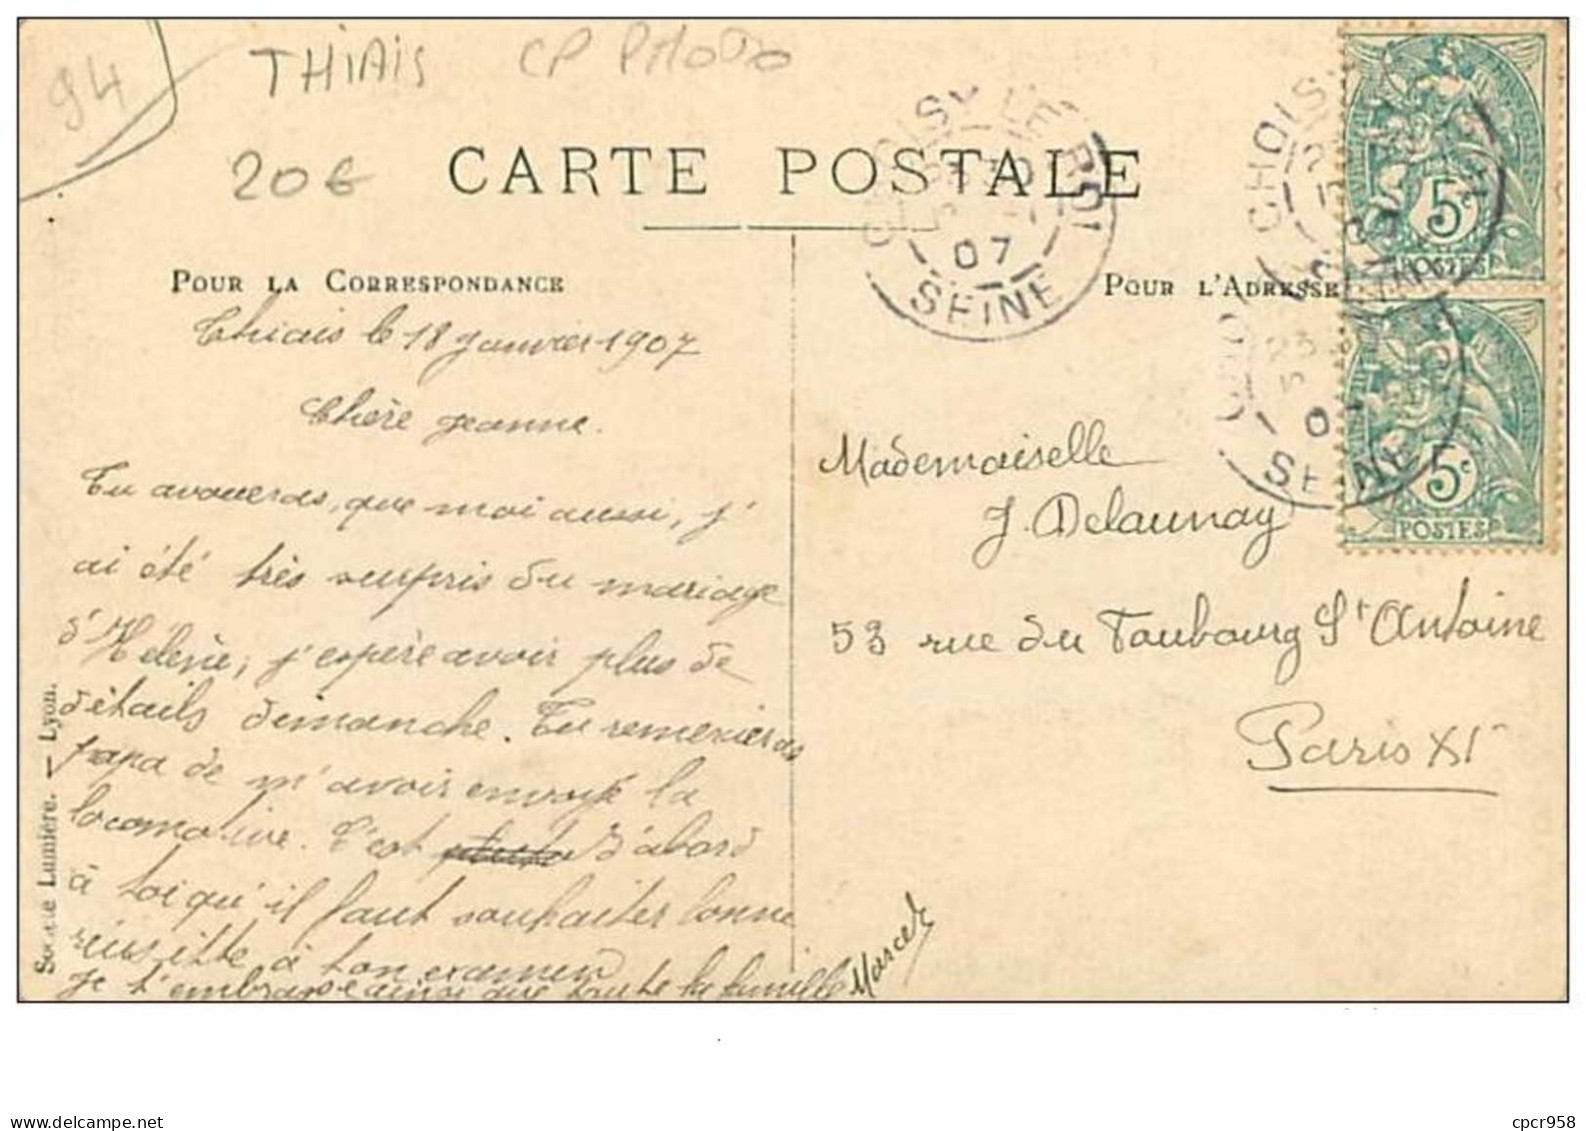 94
THIAIS CP PHOTO
20€
CARTE POSTALE
CHOISY LE ROI
07
SEINE
CHOISY
SEINE
5
POSTES
5c
POSTES
POUR LA CORRESPONDANCE
POUR L'ADRESSE
Thiais le 18 Janvier 1907
Chère Jeanne.
Tu avoueras, que moi aussi, j'
ai été très surpris du mariage
d'Hélène, j'espère avoir plus de
détails dimanche. Tu remercieras
papa de m'avoir envoyé la
locomotive. C'est d'abord
à toi qu'il faut souhaiter bonne
réussitte à ton examen
Je t'embrasse ainsi que toute la famille Marcel
Mademoiselle
J. Delaunay
53 rue du Faubourg St Antoine
Paris XIe
Société Lumière. — Lyon.
delcampe.net
cpcr958